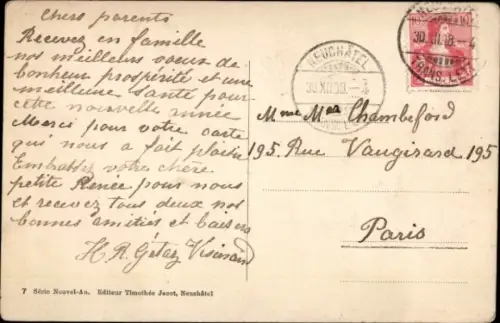 Chers parents
Recevez en famille
nos meilleurs voeux de
bonheur prospérité et une
meilleure santé pour
cette nouvelle année
Merci pour votre carte
qui nous a fait plaisir
Embrassez votre chère
petite Renée pour nous
et recevez tous deux nos
bonnes amitiés et baisers
H. R. Getaz
7 Série Nouvel-An. Editeur Timothée Jacot, Neuchâtel
NEUCHÂTEL
Mme Chambeford
195. Rue Vaugirard 195
Paris